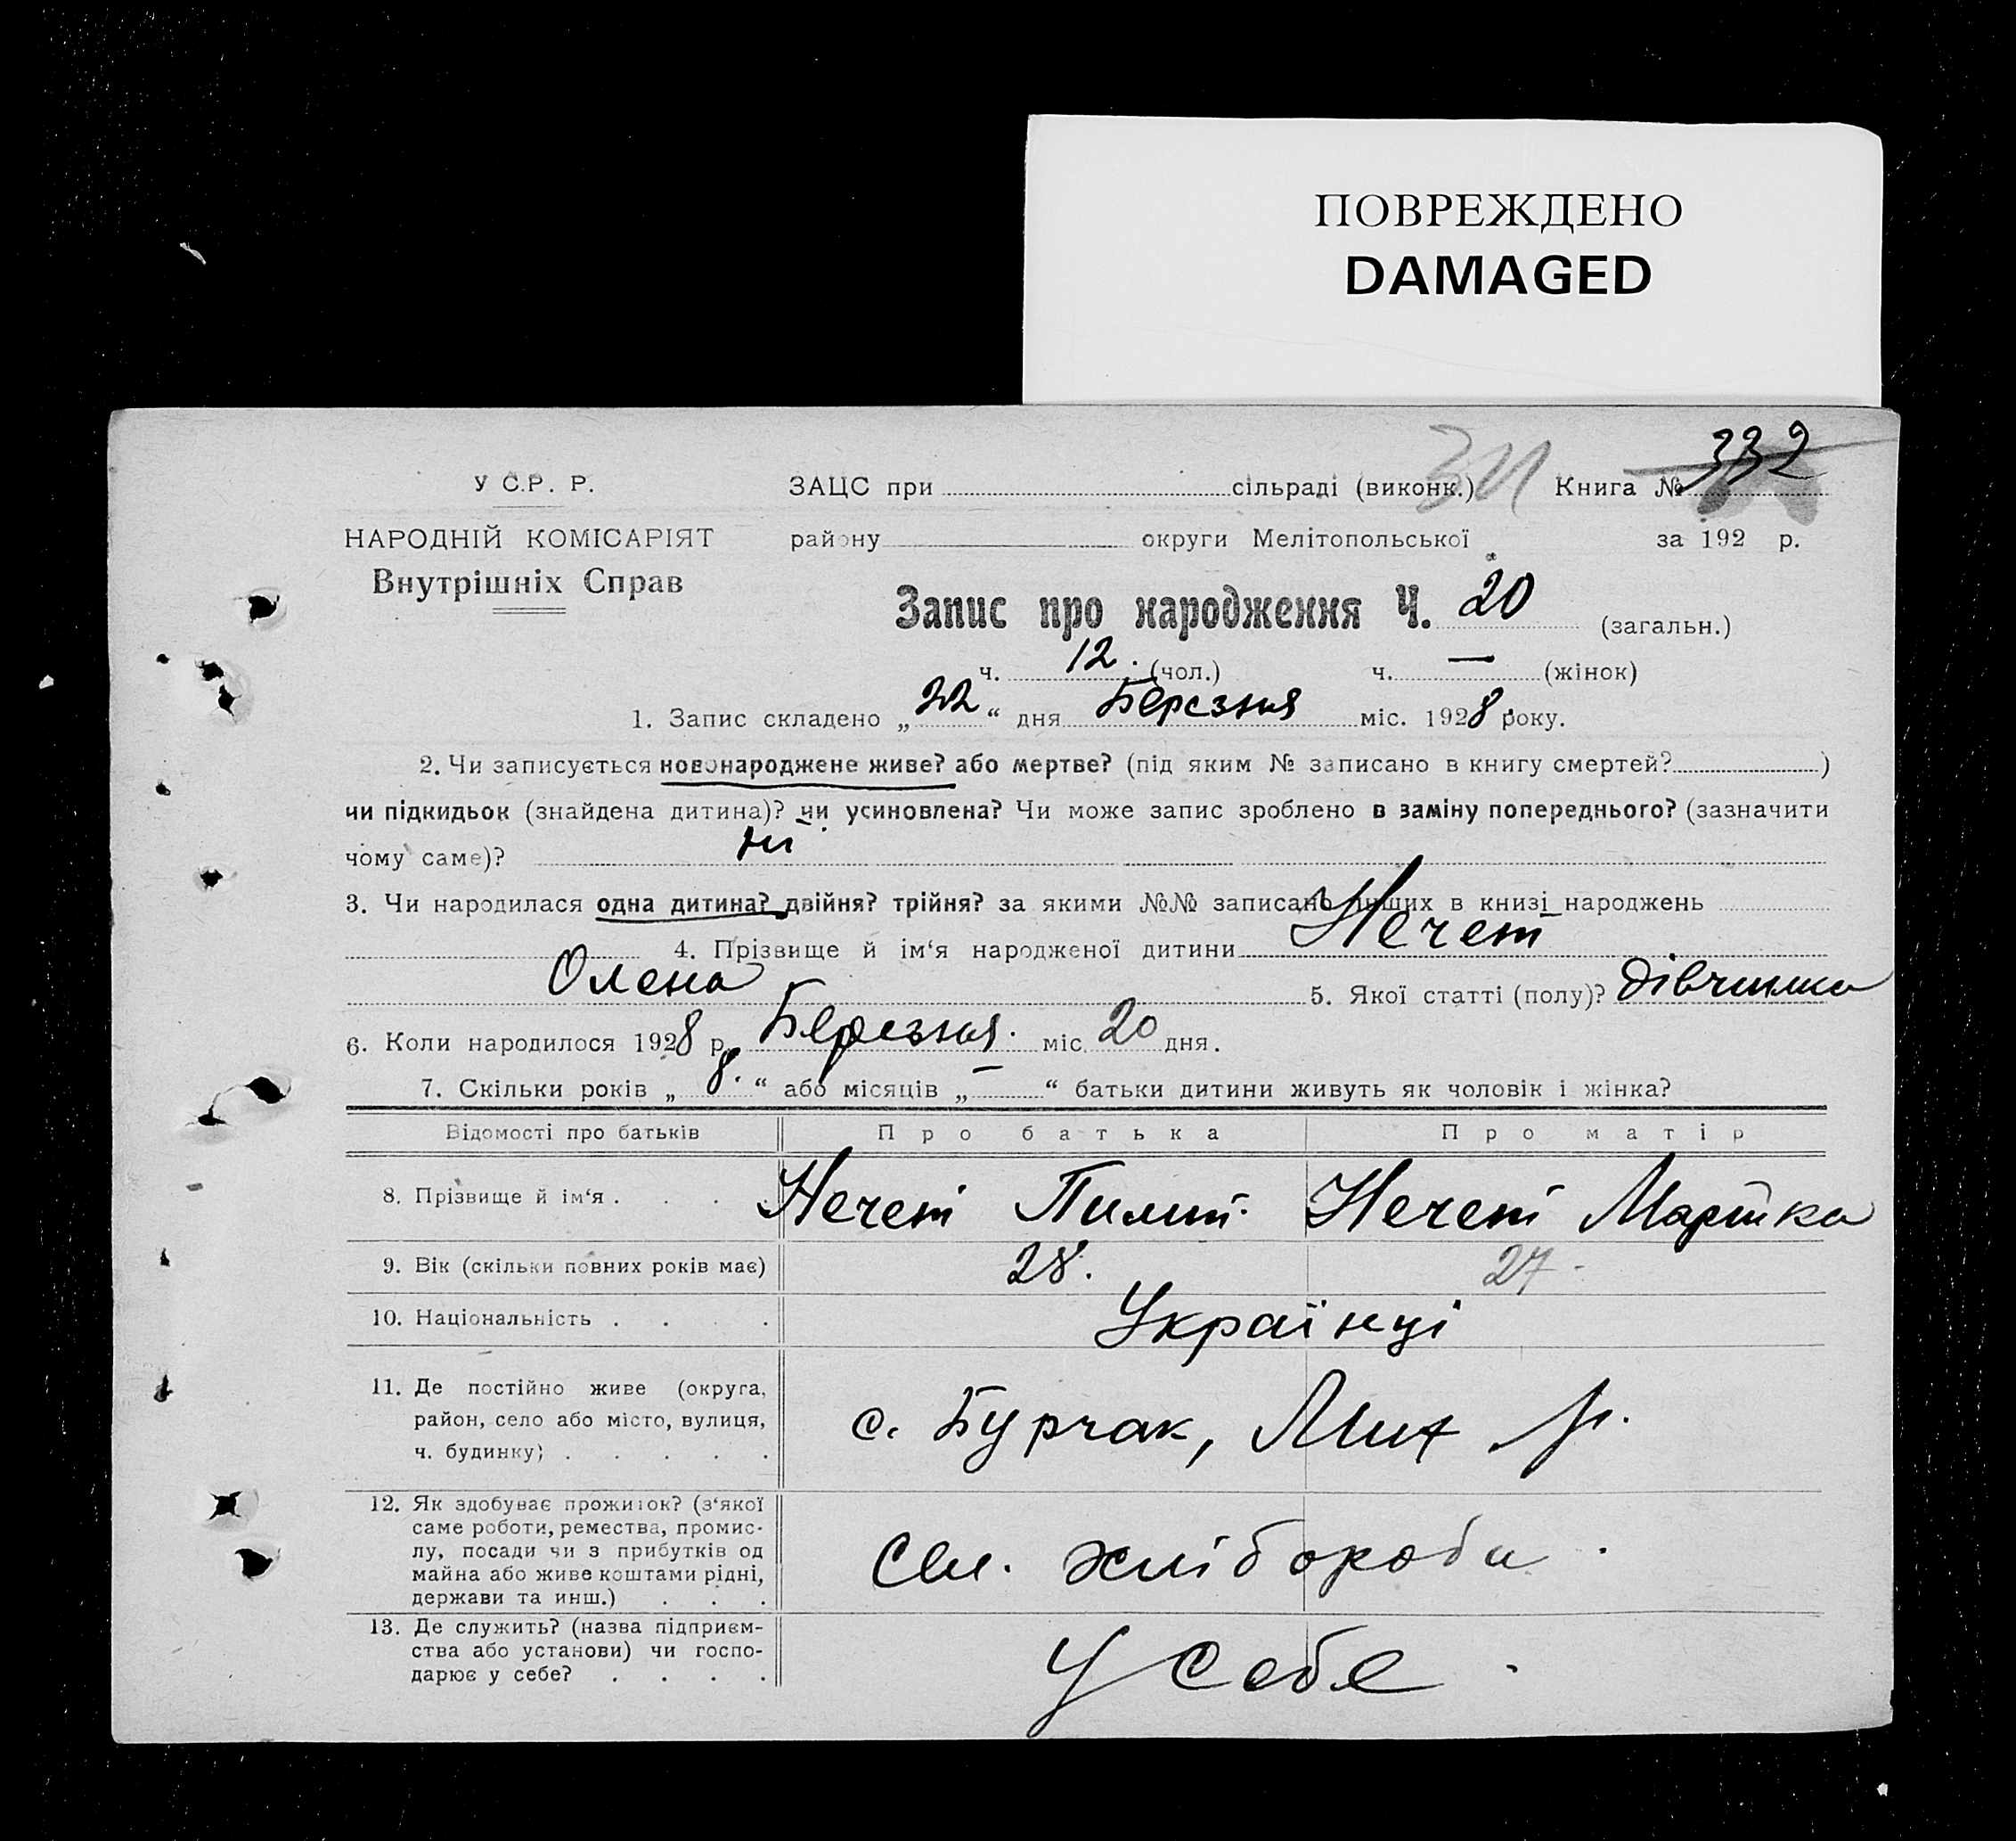 ПОВРЕЖДЕНО
DAMAGED
332
У С.Р. Р. ЗАЦС при сільраді (виконк.) Книга №
НАРОДНІЙ КОМІСАРІЯТ району округи Мелітопольської за 192 р.
Внутрішніх Справ
Запис про народження Ч. 20 (загальн.)
ч. 12. (чол.) ч. — (жінок)
1. Запис складено „22“ дня Березня міс. 1928 року.
2. Чи записується новонароджене живе? або мертве? (під яким № записано в книгу смертей? )
чи підкидьок (знайдена дитина)? чи усиновлена? Чи може запис зроблено в заміну попереднього? (зазначити
чому саме)? ні
3. Чи народилася одна дитина? двійня? трійня? за якими №№ записано інших в книзі народжень
4. Прізвище й ім‘я народженої дитини Нечет
Олена 5. Якої статті (полу)? дівчинка
6. Коли народилося 1928 р. Березня. міс. 20 дня.
7. Скільки років „8.“ або місяців „—“ батьки дитини живуть як чоловік і жінка?
Відомості про батьків Про батька Про матір
8. Прізвище й ім‘я . . . . Нечет Пилип. Нечет Марійка
9. Вік (скільки повних років має) 28. 27.
10. Національність . . . . Українці
11. Де постійно живе (округа,
район, село або місто, вулиця,
ч. будинку) . . . . . с. Бурчак, Мих р.
12. Як здобуває прожиток? (з‘якої
саме роботи, ремества, промис-
лу, посади чи з прибутків од
майна або живе коштами рідні,
держави та инш.) . . . хлібороби.
13. Де служить? (назва підприєм-
ства або установи) чи госпо-
дарює у себе? . . . . У себе.